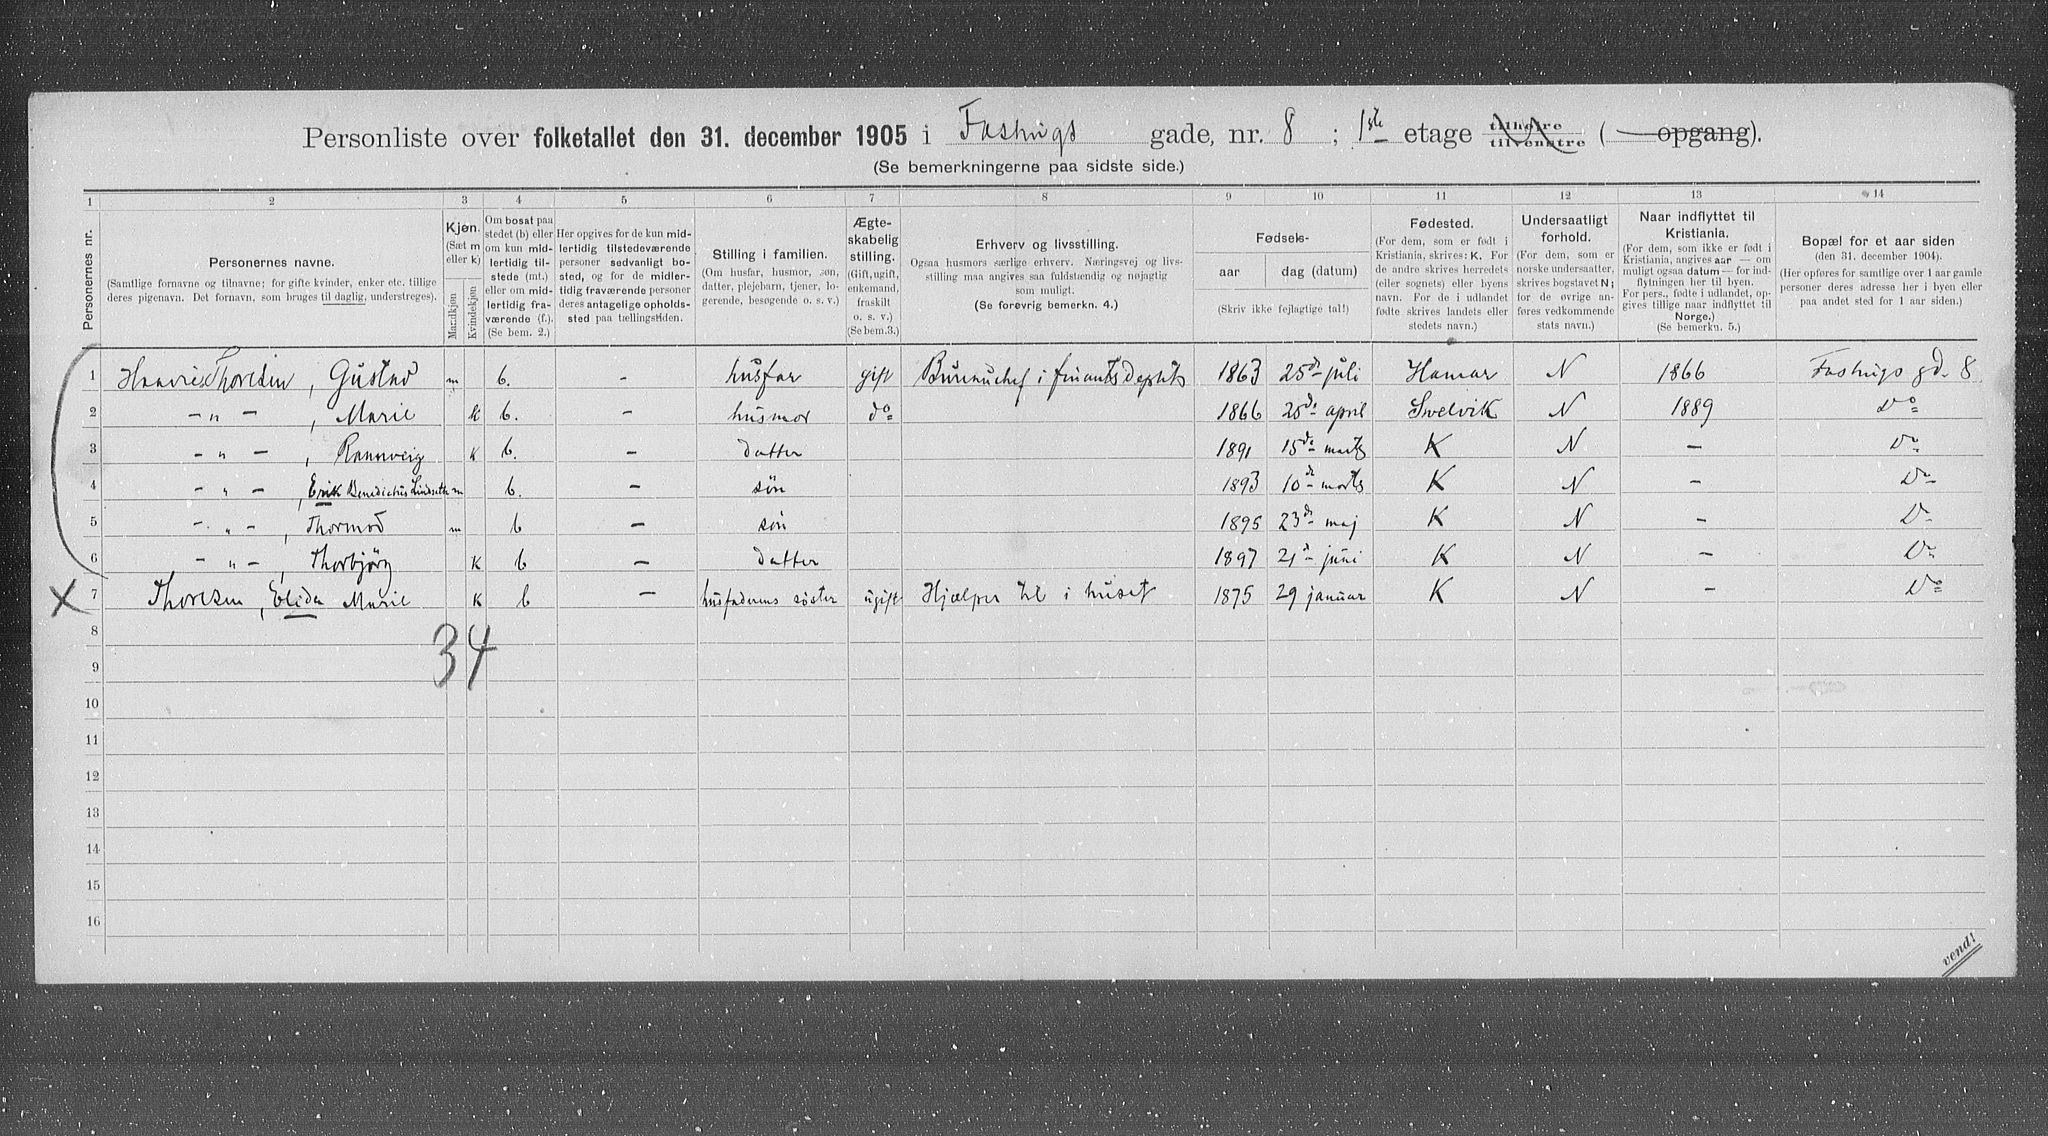 Personliste over folketallet den 31. december 1905 i Fastings gade, nr. 8 ; 1ste etage tilhøire tilvenstre ( — opgang).
(Se bemerkningerne paa sidste side.)
1 2 3 4 5 6 7 8 9 10 11 12 13 14
Personernes nr.
Personernes navne.
(Samtlige fornavne og tilnavne; for gifte kvinder, enker etc. tillige
deres pigenavn. Det fornavn, som bruges til daglig, understreges).
Kjøn.
(Sæt m
eller k)
Mandkjøn
Kvindekjøn
Om bosat paa
stedet (b) eller
om kun mid-
lertidig til-
stede (mt.)
eller om mid-
lertidig fra-
værende (f.)
(Se bem. 2.)
Her opgives for de kun mid-
lertidig tilstedeværende
personer sedvanligt bo-
sted, og for de midler-
tidig fraværende personer
deres antagelige opholds-
sted paa tællingstiden.
Stilling i familien.
(Om husfar, husmor, søn,
datter, plejebarn, tjener, lo-
gerende, besøgende o. s. v.)
Ægte-
skabelig
stilling.
(Gift, ugift,
enkemand,
fraskilt
o. s. v.)
(Se bem.3.)
Erhverv og livsstilling.
Ogsaa husmors særlige erhverv. Næringsvej og livs-
stilling maa angives saa fuldstændig og nøjagtig
som muligt.
(Se forøvrig bemerkn. 4.)
Fødsels-
aar dag (datum)
(Skriv ikke fejlagtige tal!)
Fødested.
(For dem, som er født i
Kristiania, skrives: K. For
de andre skrives herredets
(eller sognets) eller byens
navn. For de i udlandet
fødte skrives landets eller
stedets navn.)
Undersaatligt
forhold.
(For dem, som er
norske undersaatter,
skrives bogstavet N;
for de øvrige an-
føres vedkommende
stats navn.)
Naar indflyttet til
Kristiania.
(For dem, som ikke er født i
Kristiania, angives aar — om
muligt ogsaa datum — for ind-
flytningen her til byen.
For pers., fødte i udlandet, op-
gives tillige naar indflyttet til
Norge.)
(Se bemerkn. 5.)
Bopæl for et aar siden
(den 31. december 1904).
(Her opføres for samtlige over 1 aar gamle
personer deres adresse her i byen eller
paa andet sted for 1 aar siden.)
1 Thoresen, Gustav m b. - husfar gift i finantsdeptet 1863 25de juli Hamar N 1866 Fastings gd. 8
2 - " - , Marie k b. - husmor do 1866 25de april Svelvik N 1889 Do
3 - " - , Rannveig k b. - datter 1891 15de marts K N - Do
4 - " - , Erik Benedictus Lindseth m b. - søn 1893 10de marts K N - Do
5 - " - , Thormod m b - søn 1895 23de maj K N - Do
6 - " - , Thorbjørg k b - datter 1897 21de juni K N - Do
X 7 Thoresen, Elida Marie k b - husfaderens søster ugift Hjælper til i huset 1875 29 januar K N - Do
8
34
9
10
11
12
13
14
15
16
vend!